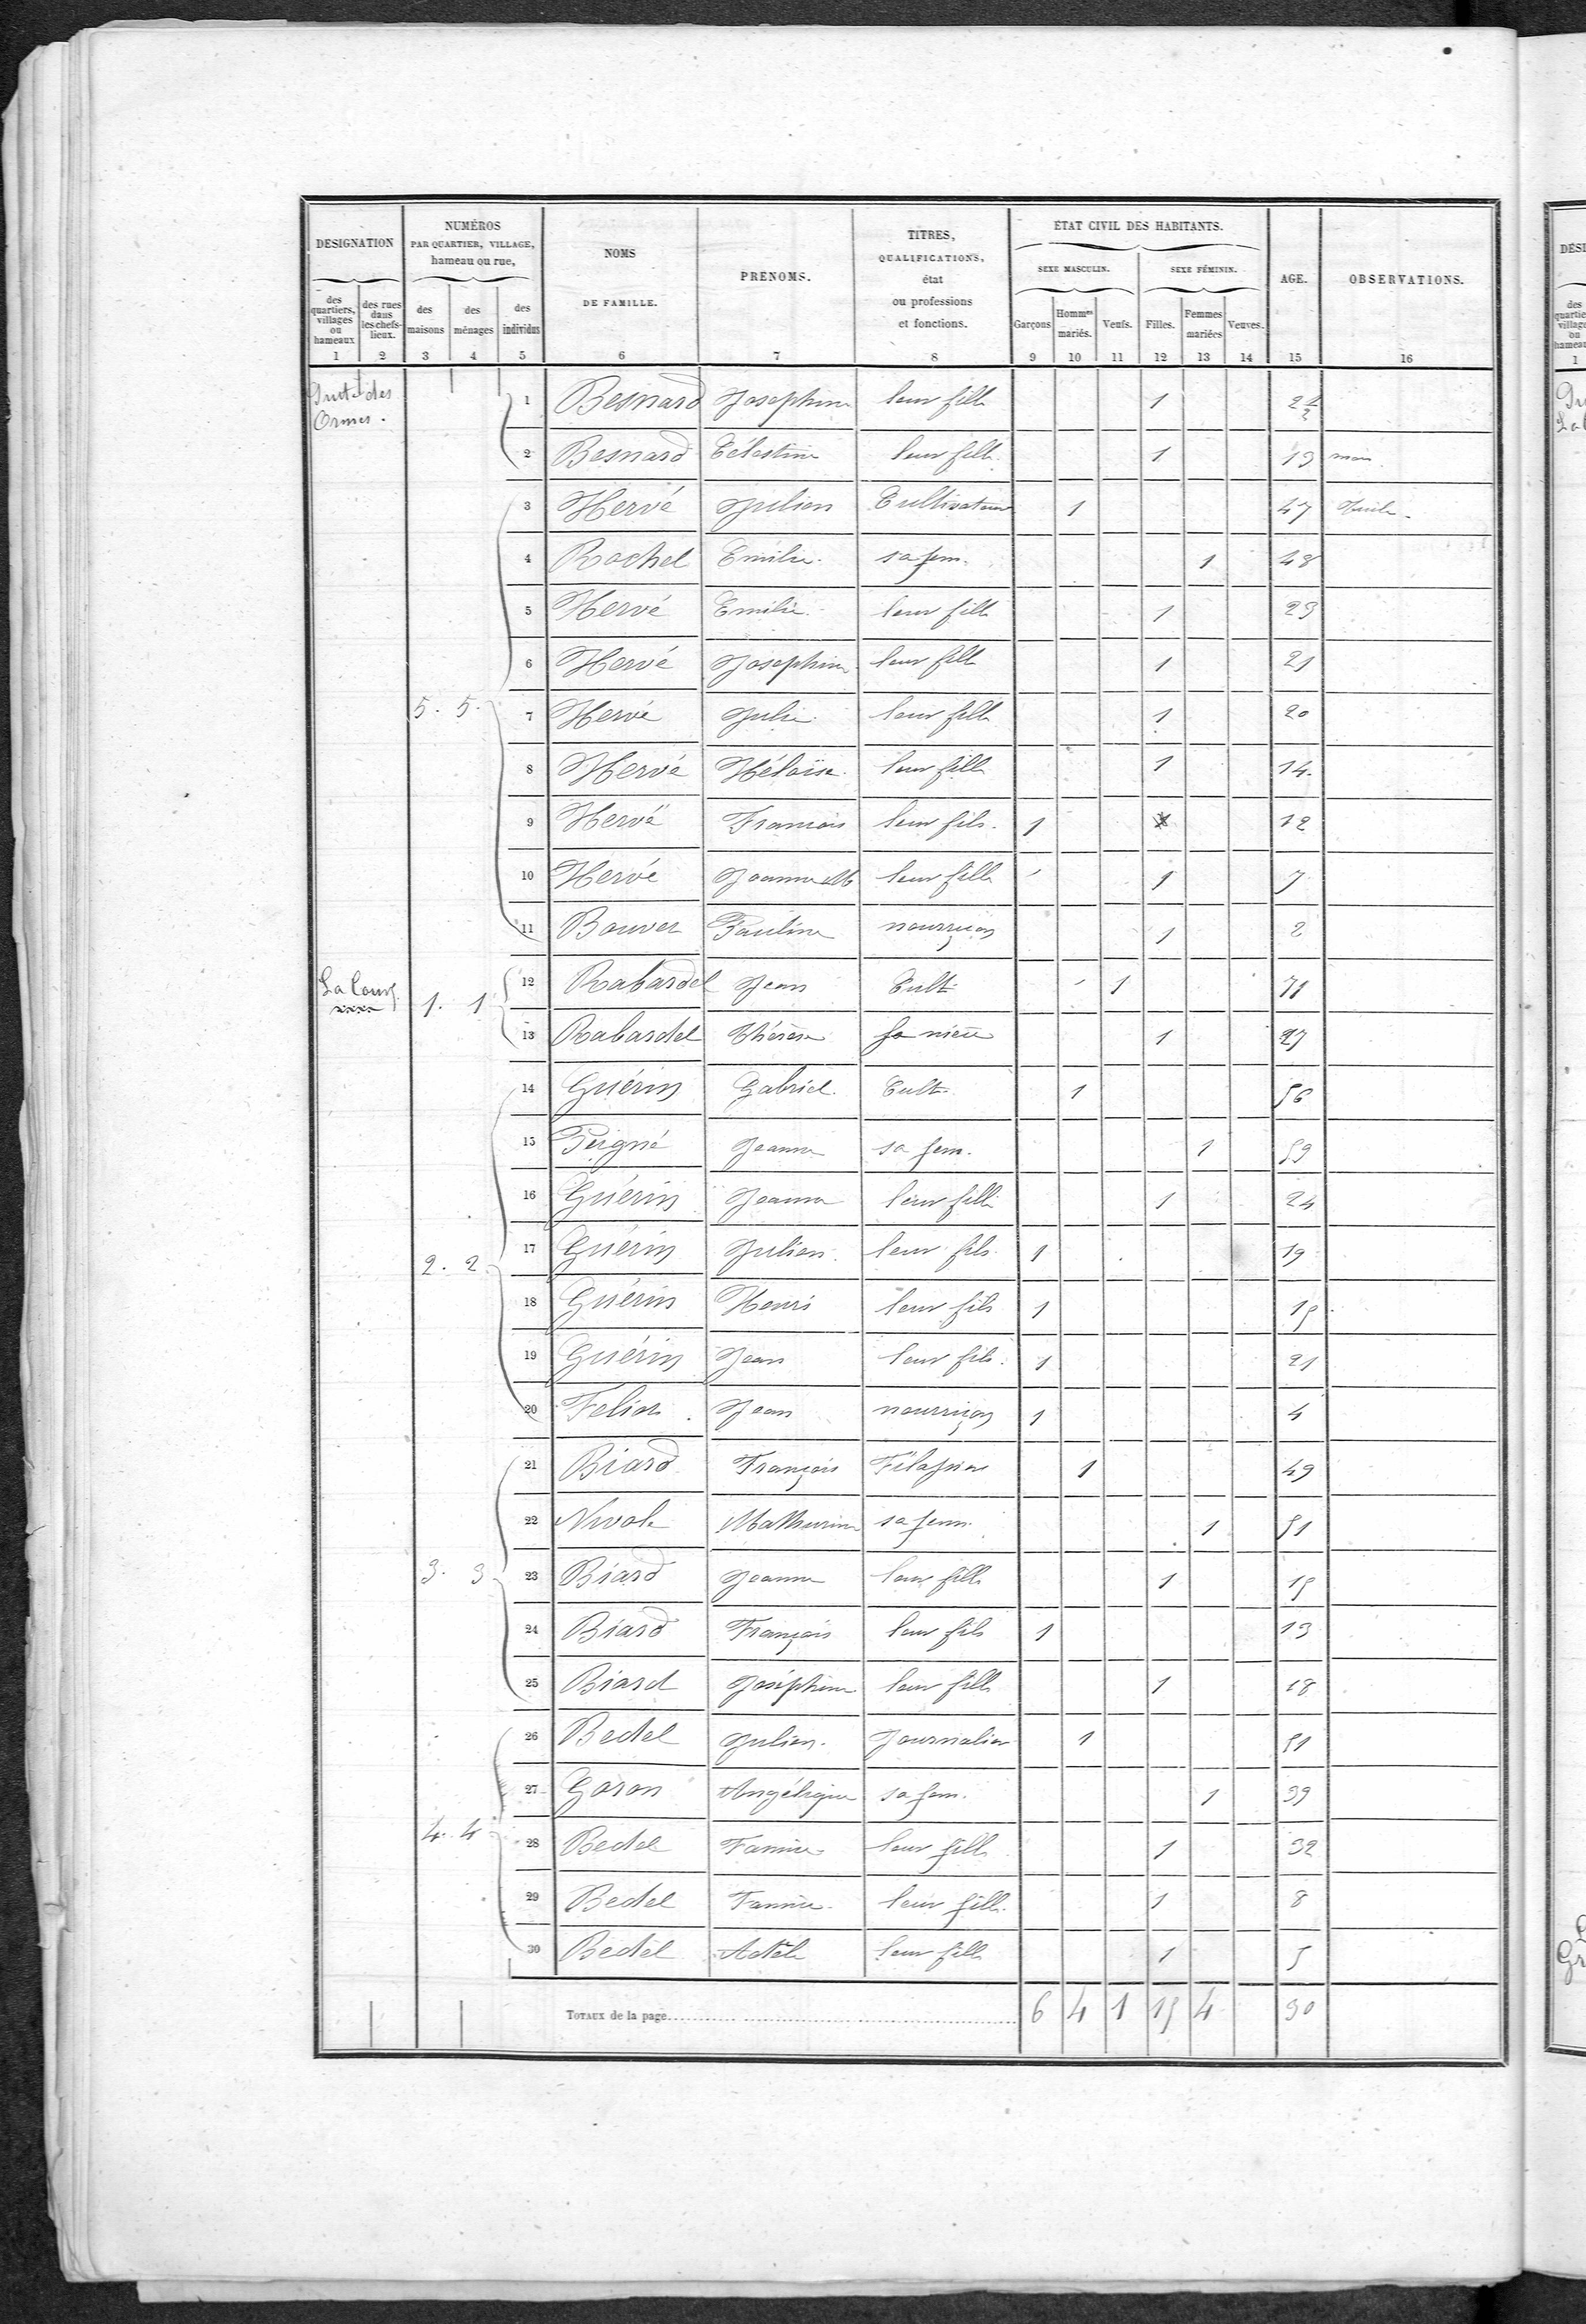 DESIGNATION
NUMÉROS
PAR QUARTIER, VILLAGE,
hameau ou rue,
NOMS
DE FAMILLE.
PRENOMS.
TITRES,
QUALIFICATIONS,
état
ou professions
et fonctions.
ÉTAT CIVIL DES HABITANTS.
SEXE MASCULIN.
SEXE FÉMININ.
AGE.
OBSERVATIONS.
des quartiers, villages ou hameaux
des rues dans les chefs-lieux.
des maisons
des ménages
des individus
Garçons
Hommes mariés.
Veufs.
Filles.
Femmes mariées
Veuves.
1 2 3 4 5 6 7 8 9 10 11 12 13 14 15 16
des
Ormes.
1 Besnard Josephine leur fille 1
2 Besnard Célestine leur fille 1 13
3 Hervé Julien Cultivateur 1 47
4 Rochel Emilie sa fem. 1 48
5 Hervé Emilie leur fille 1 23
6 Hervé Josephine leur fille 1 21
5. 5. 7 Hervé Julie leur fille 1 20
8 Hervé Héloïse leur fille 1 14
9 Hervé Francois leur fils. 1 12
10 Hervé Jeanne M leur fille 1 7
11 Bouver Pauline nourriçon 1 2
La Cour
1. 1 12 Rabardel Jean Cult. 1 71
13 Rabardel Thérèse Sa nièce 1 27
14 Guérin Gabriel Cult. 1 56
15 Peigné Jeanne sa fem. 1 59
16 Guérin Jeanne leur fille 1 24
2. 2 17 Guérin Julien leur fils 1 19
18 Guérin Henri leur fils 1 15
19 Guérin Jean leur fils. 1 21
20 Jean nourriçon 1 4
21 Biard François Filassier 1 49
22 Mathurine sa fem. 1 51
3. 3 23 Biard Jeanne leur fille 1 15
24 Biard François leur fils 1 13
25 Biard Joséphine leur fille 1 18
26 Bedel Julien Journalier 1 51
27 Goron Angélique sa fem. 1 39
4. 4 28 Bedel leur fille 1 32
29 Bedel leur fille 1 8
30 Bedel Adèle leur fille 1 5
TOTAUX de la page 6 4 1 15 4 30